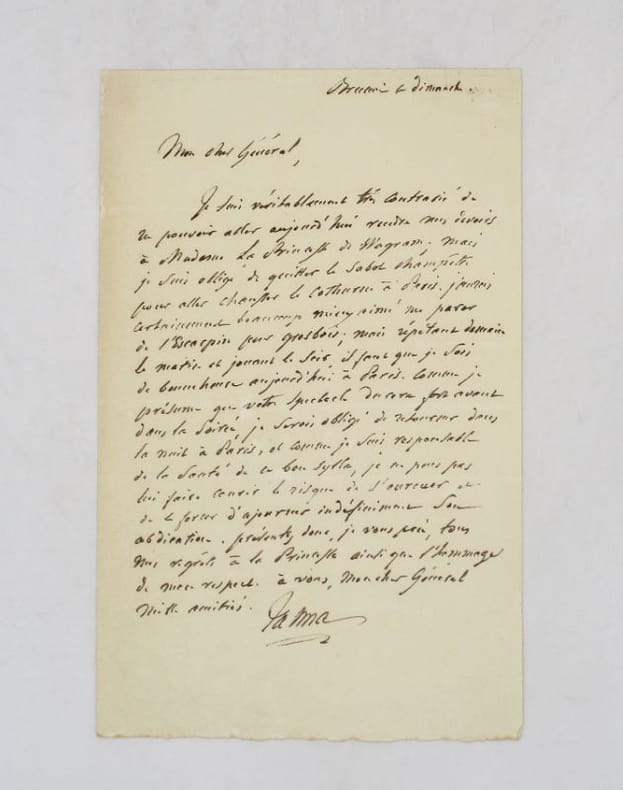 Brunoi ce dimanche.
Mon cher Général,
Je suis véritablement très contrarié de
ne pouvoir aller aujourd'hui rendre mes devoirs
à Madame La Princesse de Wagram. mais
je suis obligé de quitter le sabot champêtre
pour aller chausser le cothurne à Paris. j'aurais
certainement beaucoup mieux aimé me parer
de l'Escarpin pour grosbois; mais répétant demain
le matin et jouant le soir il faut que je sois
de bonne heure aujourd'hui à Paris. comme je
présume que votre spectacle durera fort avant
dans la soirée, je serois obligé de retourner dans
la nuit à Paris, et comme je suis responsable
de la santé de ce bon sylla, je ne puis pas
lui faire courir le risque de s'enrouer et
de le forcer d'ajourner indéfiniment son
abdication. présentez donc, je vous prie, tous
mes regrets à la Princesse ainsi que l'hommage
de mon respect. à vous, mon cher Général
mille amitiés.
Talma